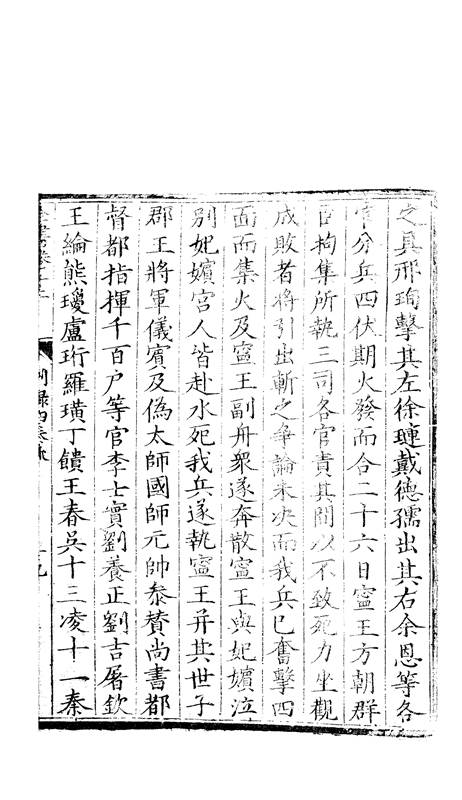 之具邢珣擊其左徐璉戴德孺出其右余恩等各
官分兵四伏期火發而合二十六日寧王方朝群
臣拘集所執三司各官責其間以不致死力坐觀
成敗者將引出斬之爭論未決而我兵已奮擊四
面而集火及寧王副舟衆遂奔散寧王與妃嬪泣
别妃嬪宫人皆赴水死我兵遂執寧王并其世子
郡王將軍儀賓及偽太師國師元帥叅賛尚書都
督都指揮千百户等官李士實劉養正劉吉屠欽
王綸熊瓊盧珩羅璜丁饋王春吳十三凌十一秦